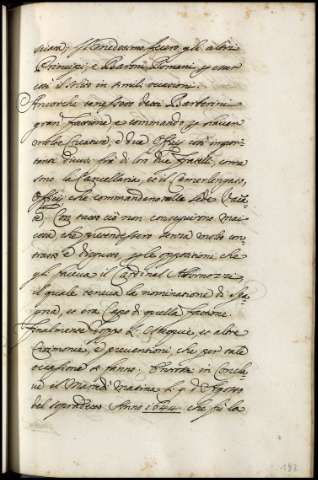 il medesimo fecero gli altri
Principi, e Baroni Romani p esser
così il solito in simili occasioni.
Ancorche tenessero detti Barberini
gran fattione, e commando p
molte Creature, e due Offitij così impor
tanti divisi frà di loro due fratelli, come
sono la Cancellaria, et il Camerlengato,
Offitij che commandano nella Sede Vacã
te, Con tutto ciò non conseguirno mai
cosa che pretendessero senza molto con
trasto e disgusti, p le oppositioni che
gli faceva il Cardinal Albornozzi,
il quale teneva la nominatione di Spa
gna, et era Capo di quella fattione.
Finalmente doppo l'Esequie, et altre
Cerimonie, e preventioni, che per tale
occasione si fanno. Entrorno in Concla
ve il Martedì Matina li 9 d'Agosto
del sopradetto Anno 1644 che fù la
193